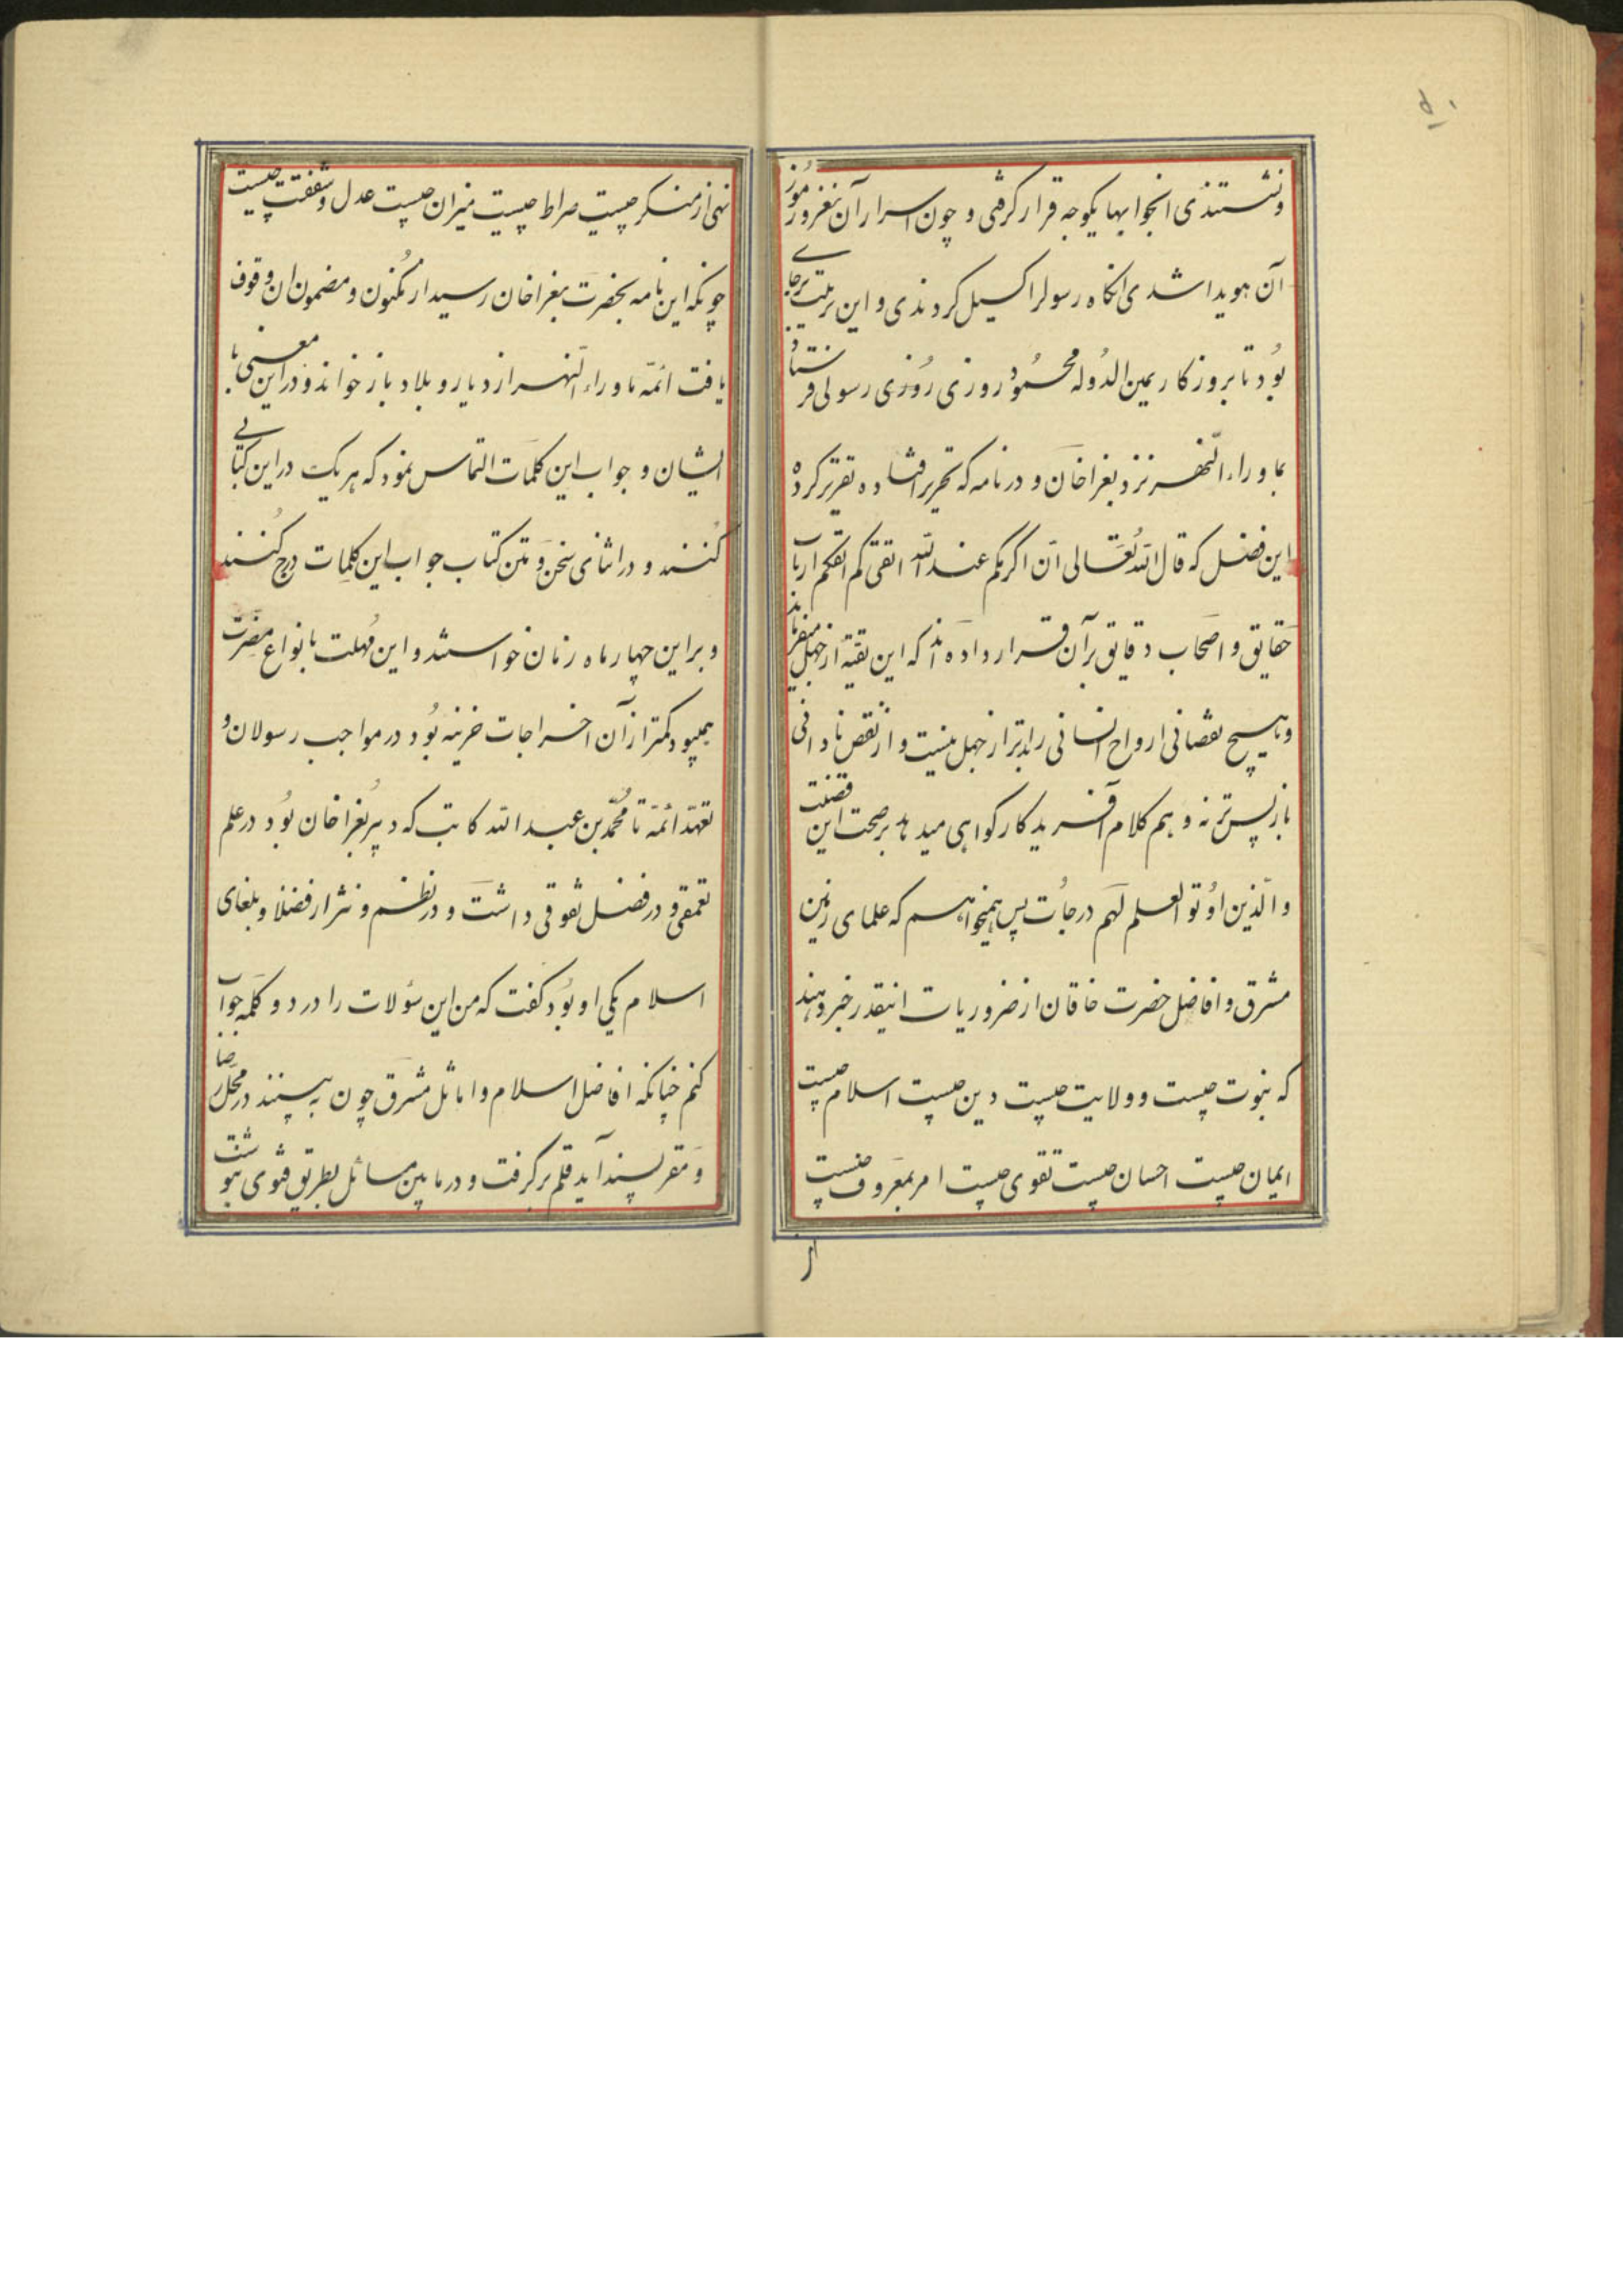 ۵۰
ونشستندی انجوابها یکوجه قرار کرفتی و چون اسرار آن نغز و رموز
آن هویدا شدی انکاه رسولرا کسیل کردندی و این ترتیب برجای
بود تا بروزکار یمین الدوله محمود روزی روزی رسولی فرستاد
بماوراء النهر نزد بغراخان و در نامه که تحریر افتاده تقریر کرده
این فصل که قال الله تعالی ان اکرمکم عند الله اتقیکم ارباب
حقایق و اصحاب دقایق بر آن قرار داده اند که این تقیه از جهل میفرماید
و هیچ نقصانی ارواح انسانی را بدتر از جهل نیست و از نقص نادانی
بازپس تر نه و هم کلام آفریدکار کواهی میدهد بر صحت این قضیت
والذین اوتو العلم لهم درجات پس همیخواهم که علمای زمین
مشرق و افاضل حضرت خاقان از ضروریات اینقدر خبر دهند
که نبوت چیست و ولایت چیست دین چیست اسلام چیست
ایمان چیست احسان چیست تقوی چیست امر بمعروف چیست
نهی از منکر چیست صراط چیست میزان چیست عدل و شفقت چیست
چونکه این نامه بحضرت بغراخان رسید از مکنون و مضمون ان وقوف
یافت ائمه ماوراء النهر از دیار و بلاد باز خواند و در این معنی با
ایشان و جواب این کلمات التماس نمود که هر یک در این کتابی
کنند و در اثنای سخن و متن کتاب جواب این کلمات درج کنند
و براین چهار ماه زمان خواستند و این مهلت بانواع مضرت
همیبود کمتر از آن اخراجات خزینه بود در مواجب رسولان و
تعهد ائمه تا محمد بن عبد الله کاتب که دبیر بغراخان بود در علم
تعمقی و در فضل تفوقی داشت و در نظم و نثر از فضلا و بلغای
اسلام یکی او بود کفت که من این سؤلات را در دو کلمه جواب
کنم چنانکه افاضل اسلام و اماثل مشرق چون به بینند در محل رضا
و مقر پسند آید قلم بر کرفت و در مابین مسائل بطریق فتوی بنوشت